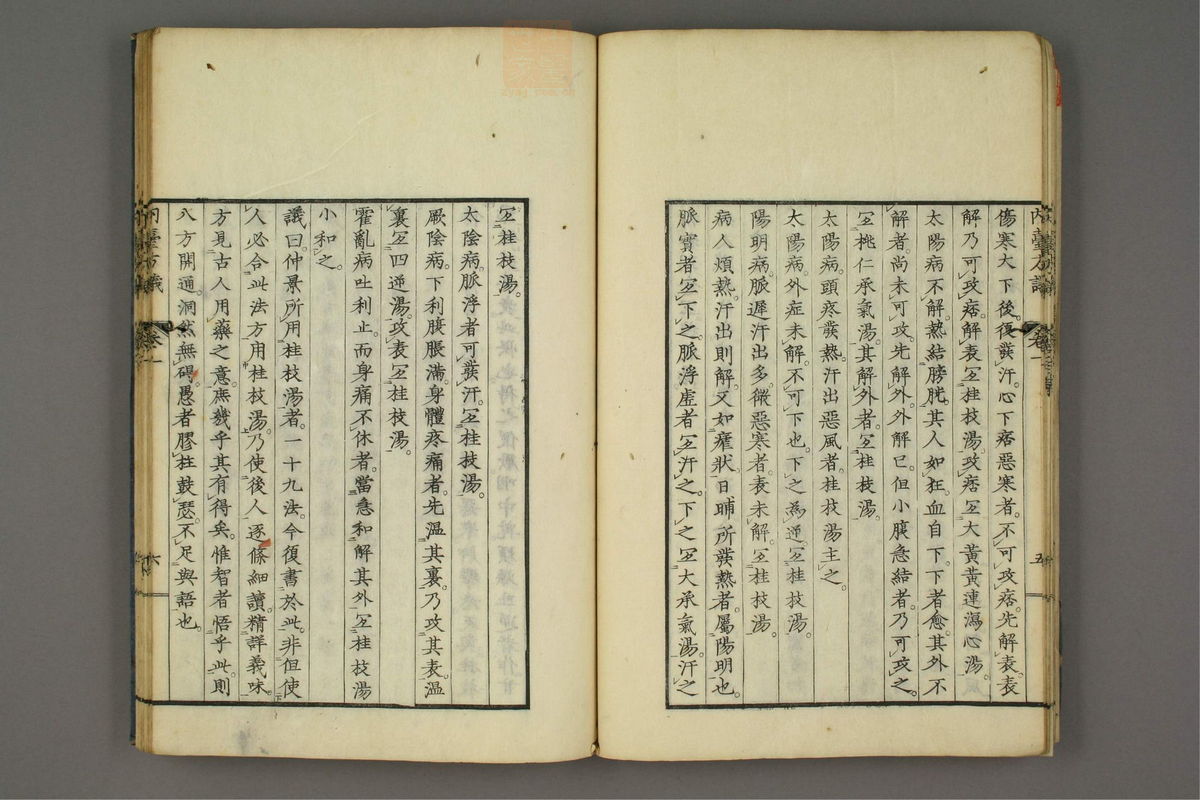 傷寒大下後。復發汗。心下痞惡寒者。不可攻痞。先解表。表
解乃可攻痞。解表宜桂枝湯。攻痞宜大黃黃連瀉心湯。
太陽病不解。熱結膀胱。其人如狂。血自下。下者愈。其外不
解者。尚未可攻。先解外。外解已。但小腹急結者。乃可攻之。
宜桃仁承氣湯。其解外者。宜桂枝湯。
太陽病。頭疼發熱。汗出惡風者。桂枝湯主之。
太陽病。外症未解。不可下也。下之為逆。宜桂枝湯。
陽明病。脈遲汗出多。微惡寒者。表未解。宜桂枝湯。
病人煩熱。汗出則解。又如瘧狀。日晡所發熱者。屬陽明也。
脈實者宜下之。脈浮虛者宜汗之。下之宜大承氣湯。汗之
内臺方議 卷一 五
宜桂枝湯。
太陰病。脈浮者可發汗。宜桂枝湯。
厥陰病。下利腹脹滿。身體疼痛者。先溫其裏。乃攻其表。溫
裏宜四逆湯。攻表宜桂枝湯。
霍亂病吐利止。而身痛不休者。當急和解其外。宜桂枝湯
小和之。
議曰。仲景所用桂枝湯者。一十九法。今復書於此。非但使
人必合此法方用桂枝湯。乃使後人逐條細讀。精詳義味。
方見古人用藥之意。庶幾乎其有得矣。惟智者悟乎此。則
八方開通。洞然無碍。愚者膠柱鼓瑟。不足與語也。
内臺方議 卷一 六